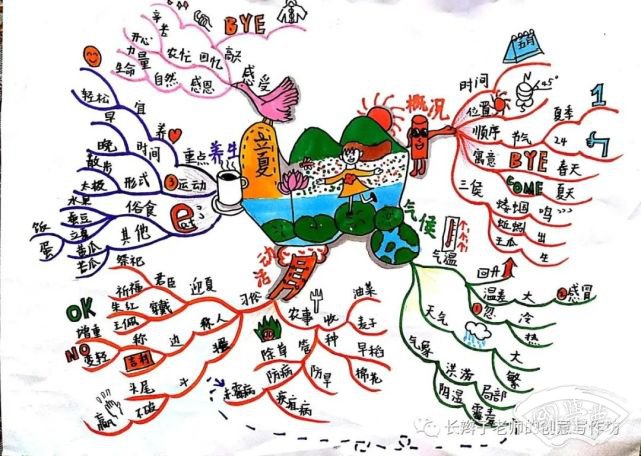 立夏
概况
时间
五月
位置
N
45°
顺序
节气
夏季
1
24
7
寓意
BYE
春天
COME
夏天
三候
蝼蝈
鸣
蚯蚓
出
王瓜
生
气候
气温
回升
温差
大
感冒
忽
冷
热
天气
大
繁
气象
洪涝
局部
阴湿
霉素
活动
习俗
迎夏
君臣
祭祀
祈福
穿戴
朱红
玉佩
称人
边
称
OK
增重
NO
变轻
吉利
斗
头尾
不破
赢
农事
收
油菜
麦子
种
早稻
棉花
管
除草
防病
防旱
赤霉病
疫症病
养生
重点
养
时间
宜
早
轻松
晚
运动
形式
散步
太极
Eat
俗食
水果
蚕豆
其他
黄瓜
苦瓜
饭
蛋
感受
高兴
BYE
回忆
辛苦
开心
农忙
感恩
力量
自然
生命
长辫子老师的创意写作坊